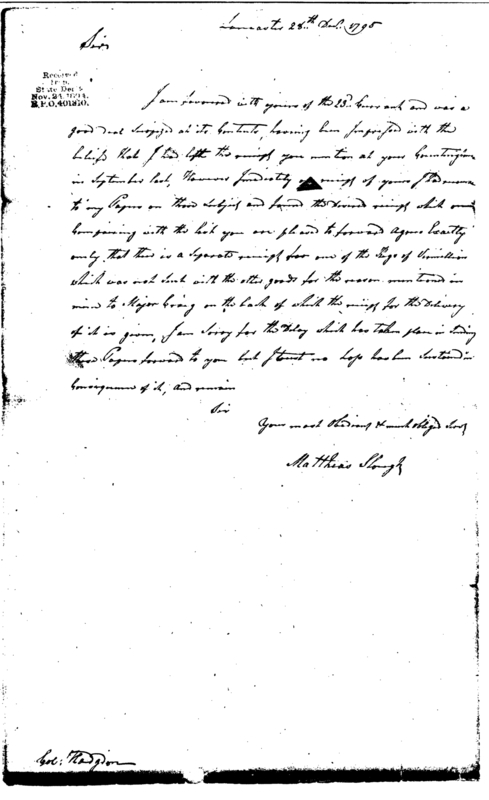 Lancaster 28th Decr. 1795
Sir
Received
State Dec
Nov. 24, 1894.
R.P.O. 401810.
I am favoured with yours of the 23d. Currant and was a
good deal surprized at its Contents, having been Impressed with the
beliefe that I had left the receipts you mention at your
in September last, However Imediately on receipt of yours I
to my Papers on those Subjects and found the receipts which on
Comparing with the list you are pleased to forward agrees Exactly
only, that there is a Separate receipt for one of the Kegs of Vermillion
which was not sent with the other goods for the reason mentioned in
mine to Major Craig on the back of which the receipt for the Delivery
of it is given, I am Sorry for the Delay which has taken place in Sending
these Papers forward to you but I trust no loss has been Sustained in
Consequence of it, and remain
Sir
Your most Obedient & much obliged Servt
Matthias Slough
Col: Hodgdon